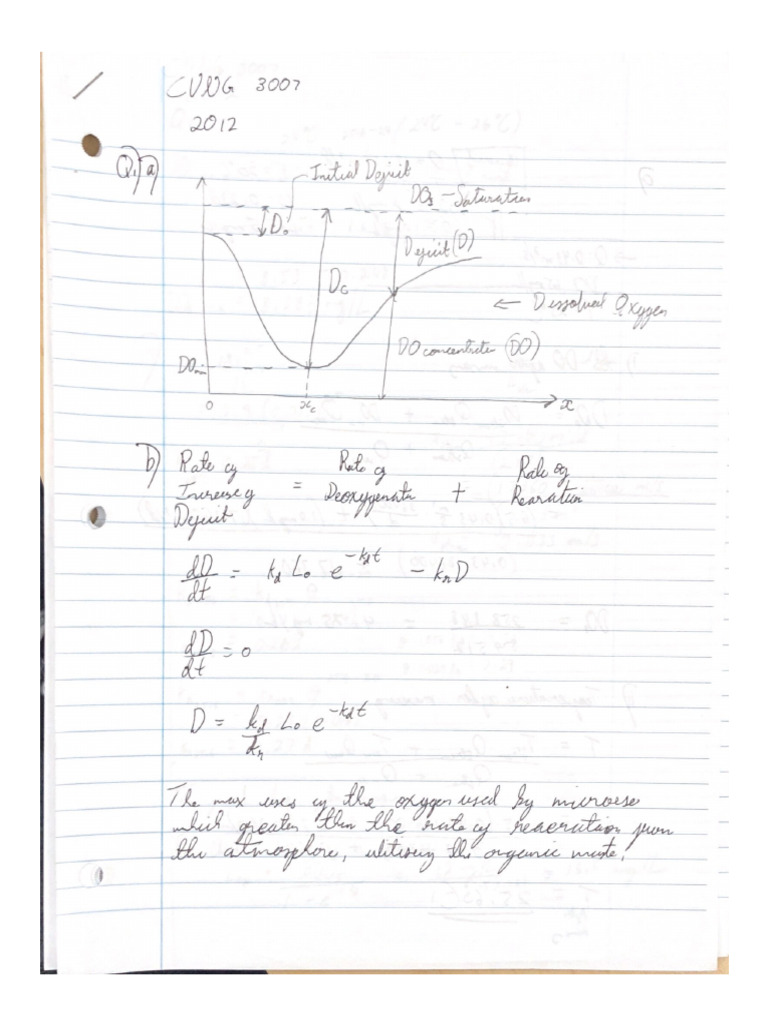 CVNG 3007
2012
Q1) a)
Initial Deficit
DOs - Saturation
Do
Deficit (D)
Dc
← Dissolved Oxygen
DO concentration (DO)
DOmin
0 xc x
b) Rate of Rate of Rate of
Increase of = Deoxygenation + Rearation
Deficit
dD/dt = kd Lo e^-kdt - krD
dD/dt = 0
D = kd/kr Lo e^-kdt
The max uses of the oxygen used by
which greater then the rate of reaeration from
the atmosphere, the organic waste.